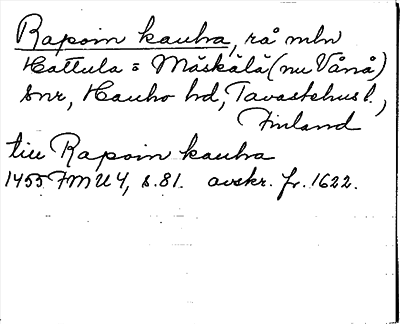 Rapoin kauha, rå mln
Hattula = Mäskälä (nu Vånå)
snr, Hauho hd, Tavastehus l.,
Finland
till Rapoin kauha
1455 FMU 4, s. 81. avskr. fr. 1622.